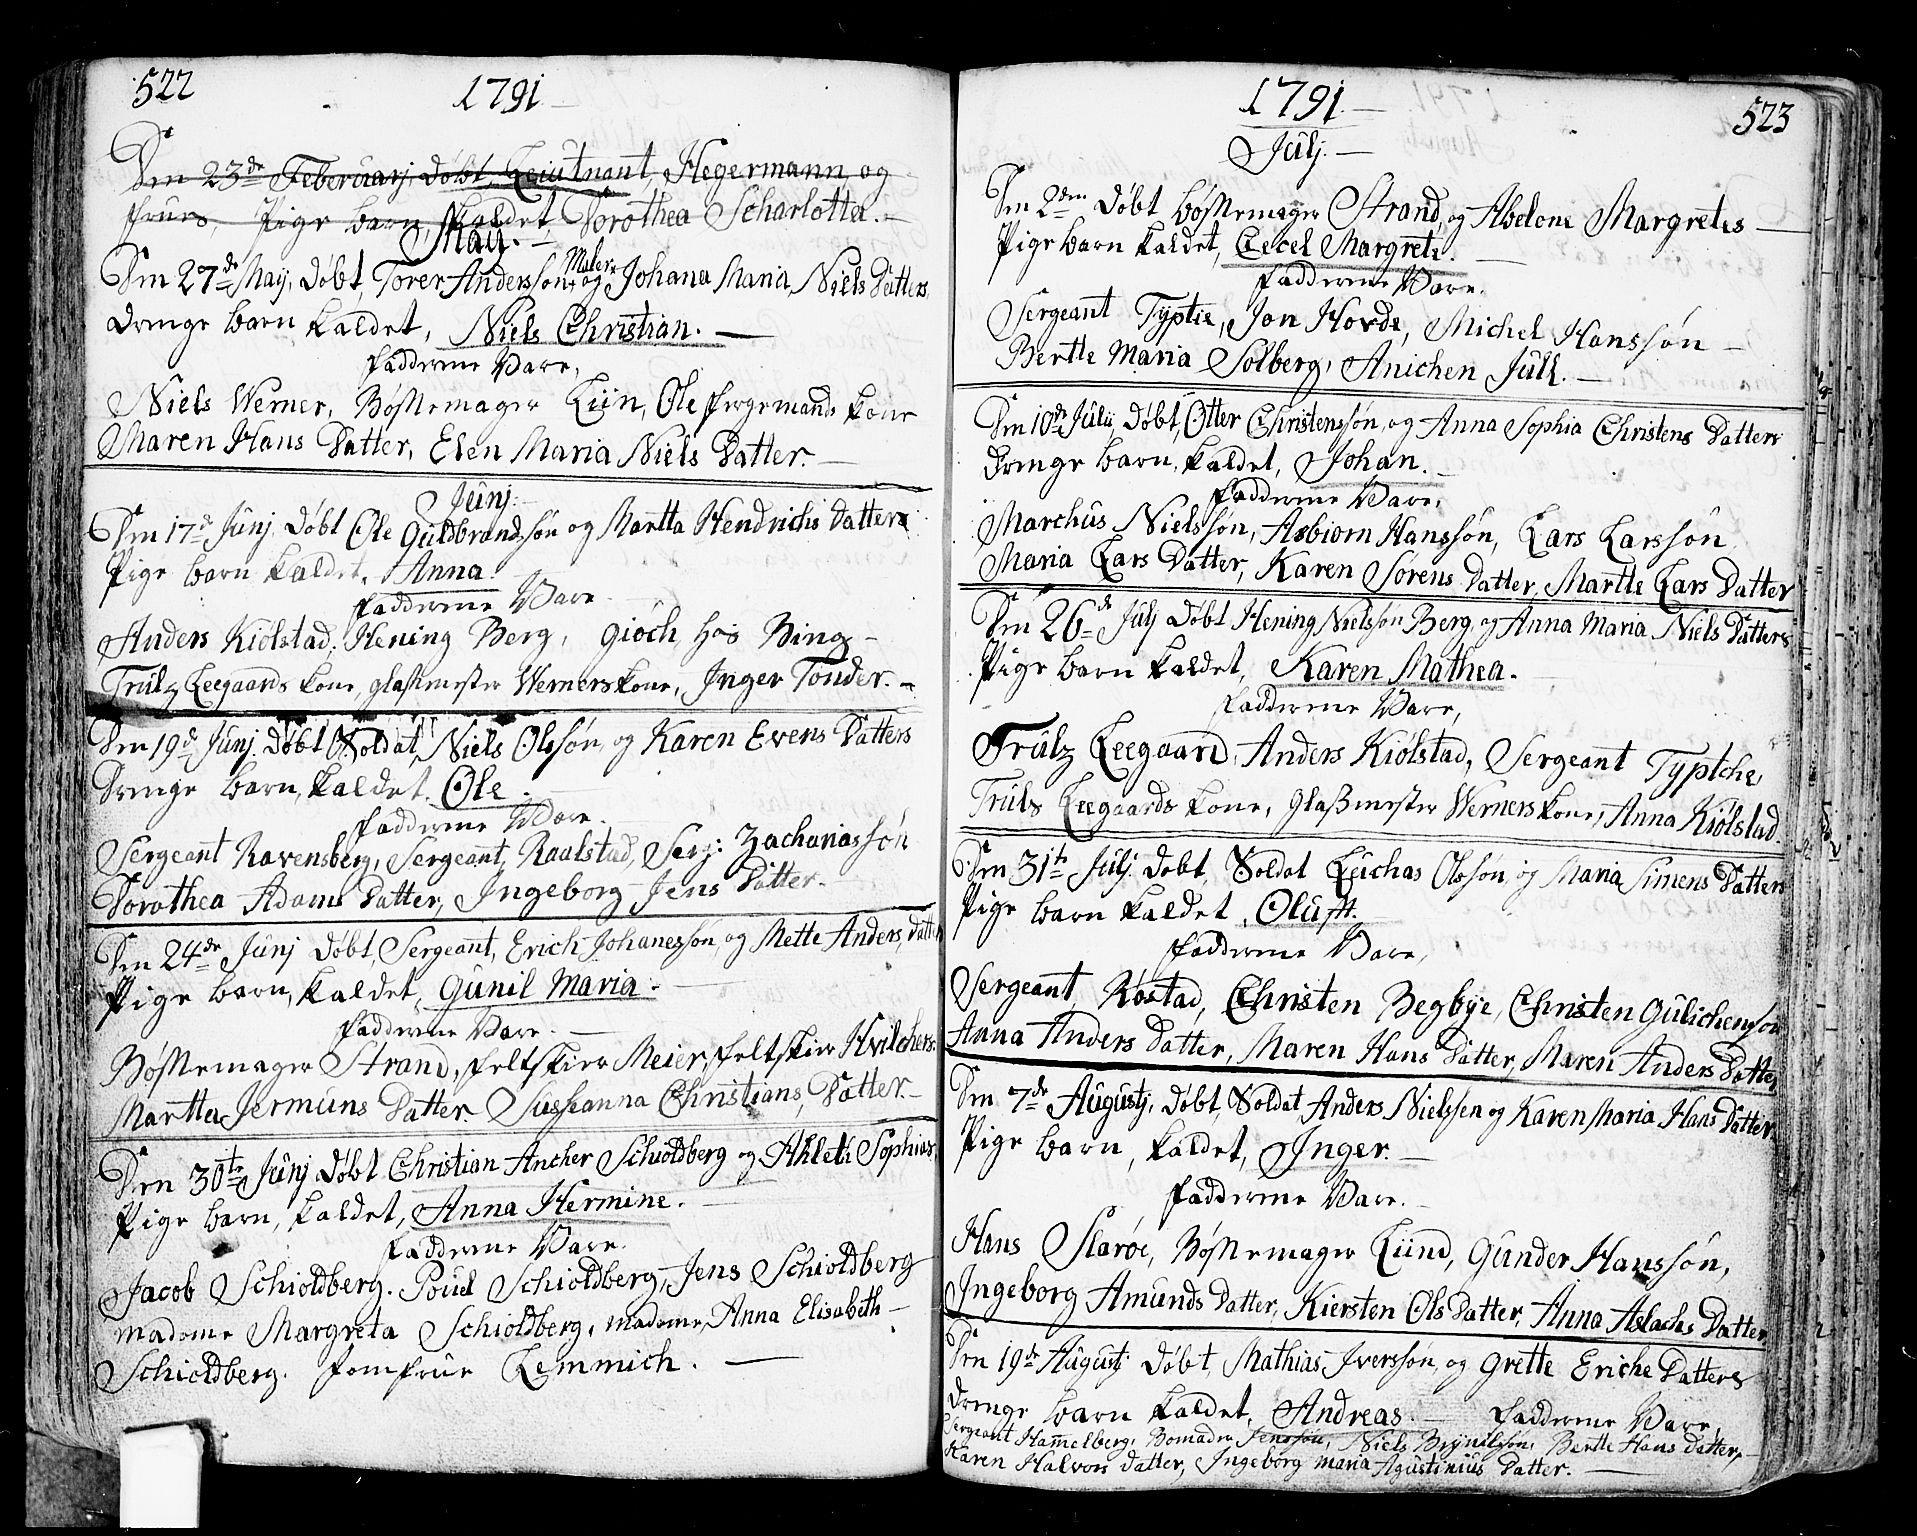 522
1791
Den 23de Feberuarj, døbt, Leiutnant, Hegermann og
Frues, Pige barn, kaldet, Dorothea Scharlotta.
Maij.
Den 27de Maij, døbt, Torer Anderssøn, Maler og Johana Maria, Niels Datters
Drenge barn kaldet, Niels Christian.
Fadderne Vare,
Niels Werner, Bøssemager Liin, Ole Fergemands kone
Maren Hans Datter, Elen Maria Niels Datter.
Junj.
Den 17de Junj, Døbt Ole Guldbrandsøn og Martta Hendrichs Datters
Pige barn kaldet, Anna.
Fadderne Vare
Anders Kiølstad, Hening Berg, Gioch, hos Bing
Trulz Leegaards kone, glassmester Werners kone, Inger Tonder.
Den 19de Junj. Døbt Soldat Niels Olssøn og Karen Evens Datters
Drenge barn, kaldet, Ole.
Fadderne Vare.
Sergeant Ravensberg, Sergeant, Raalstad, Serg: Zachariassøn
Dorothea Adams Datter, Ingeborg Jens Datter.
Den 24de Junj Døbt, Sergeant, Erich Johanessøn, og Mette Anders, Datters
Pige barn, kaldet, Gunil Maria.
Fadderne Vare.
Bøssemager Strand, Feltskier Meier, Feltskier Hvilchers
Martta Jermuns Datter. Susseanna Christians, Datter.
Den 30te Junj Døbt Christian Ancher Schioldberg og Ahleti Sophias
Pige barn, kaldet, Anna Hermine.
Fadderne Vare.
Jacob Schioldberg. Pouel Schioldberg, Jens Schioldberg
Madame Margreta Schioldberg, Madame, Anna Elisabeth
Schioldberg. Jomfrue Lemmich.
1791
523
Julj.
Den 2den Døbt bøssemager Strand, og Abelone Margretes
Pige barn kaldet, Cecel Margrete.
Fadderne Vare.
Sergeant Typtie, Jon Hovde, Michel Hanssøn
Berthe Maria Solberg, Anichen Jull.
Den 10de Julij Døbt, Otter Christenssøn, og Anna Sophia Christens Datters
Drenge barn, kaldet, Johan.
Fadderne Vare,
Marchus Nielssøn, Asbiorn Hanssøn, Lars Larssøn
Maria Lars Datter, Karen Sørens Datter, Marthe Lars Datter
Den 26de Julj Døbt Hening Nielsson Berg, og Anna Maria Niels Datters
Pige barn kaldet, Karen Mathea.
Fadderne Vare,
Trulz Leegaard, Anders Kiølstad, Sergeant Typtche,
Truls Leegaards kone, Glassmester Werners kone, Anna Kiølstad.
Den 31te Julj. Døbt, Soldat Luchas Olssøn, og Maria Simens Datters
Pige barn kaldet, Oluff.
Fadderne Vare,
Sergeant, Røstad, Christen Begbye, Christen Gulichenssøn
Anna Anders Datter, Maren Hans Datter, Maren Anders Datter
Den 7de Augustj, Døbt, Soldat Anders Nielssen og Karen Maria Hans Datter
Pige barn, kaldet, Inger.
Fadderne Vare.
Hans Slarøe, Bøssemager Liind, Gunder Hanssøn,
Ingeborg Amunds Datter, Kiersten Ols Datter, Anna Aslachs Datter
Den 19de Augustj Døbt, Mathias Iverssøn, og Grette Eriche Datters
Drenge barn kaldet, Andreas. Fadderne Vare,
Sergeant Hammelberg, Bomader Jenssøn, Niels Brynilsøn, Berthe Hans Datter,
Karen Halvors Datter, Ingeborg Maria Agustinius Datter.